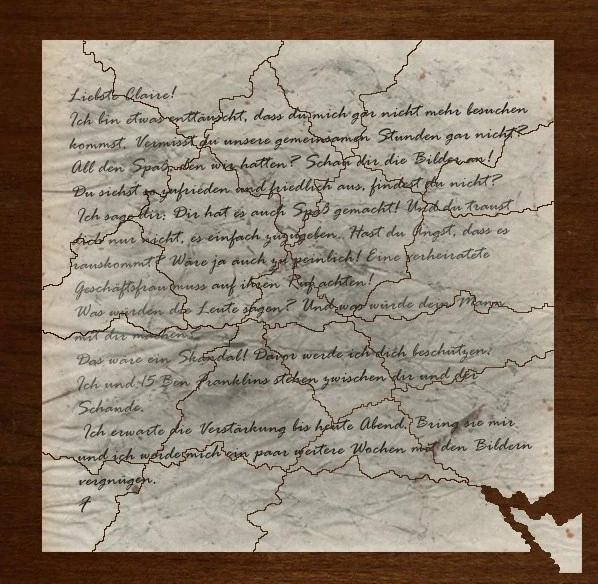 Liebste Claire!
Ich bin etwas enttäuscht, dass du mich gar nicht mehr besuchen
kommst. Vermisst du unsere gemeinsamen Stunden gar nicht?
All den Spaß, den wir hatten? Schau dir die Bilder an!
Du siehst so zufrieden und friedlich aus, findest du nicht?
Ich sage dir: Dir hat es auch Spaß gemacht! Und du traust
dich nur nicht, es einfach zuzugeben. Hast du Angst, dass es
rauskommt? Wäre ja auch zu peinlich! Eine verheiratete
Geschäftsfrau muss auf ihren Ruf achten!
Was würden die Leute sagen? Und was würde dein Mann
mit dir machen?
Das wäre ein Skandal! Davor werde ich dich beschützen.
Ich und 15 Ben Franklins stehen zwischen dir und der
Schande.
Ich erwarte die Verstärkung bis heute Abend. Bring sie mir
und ich werde mich ein paar weitere Wochen mit den Bildern
vergnügen.